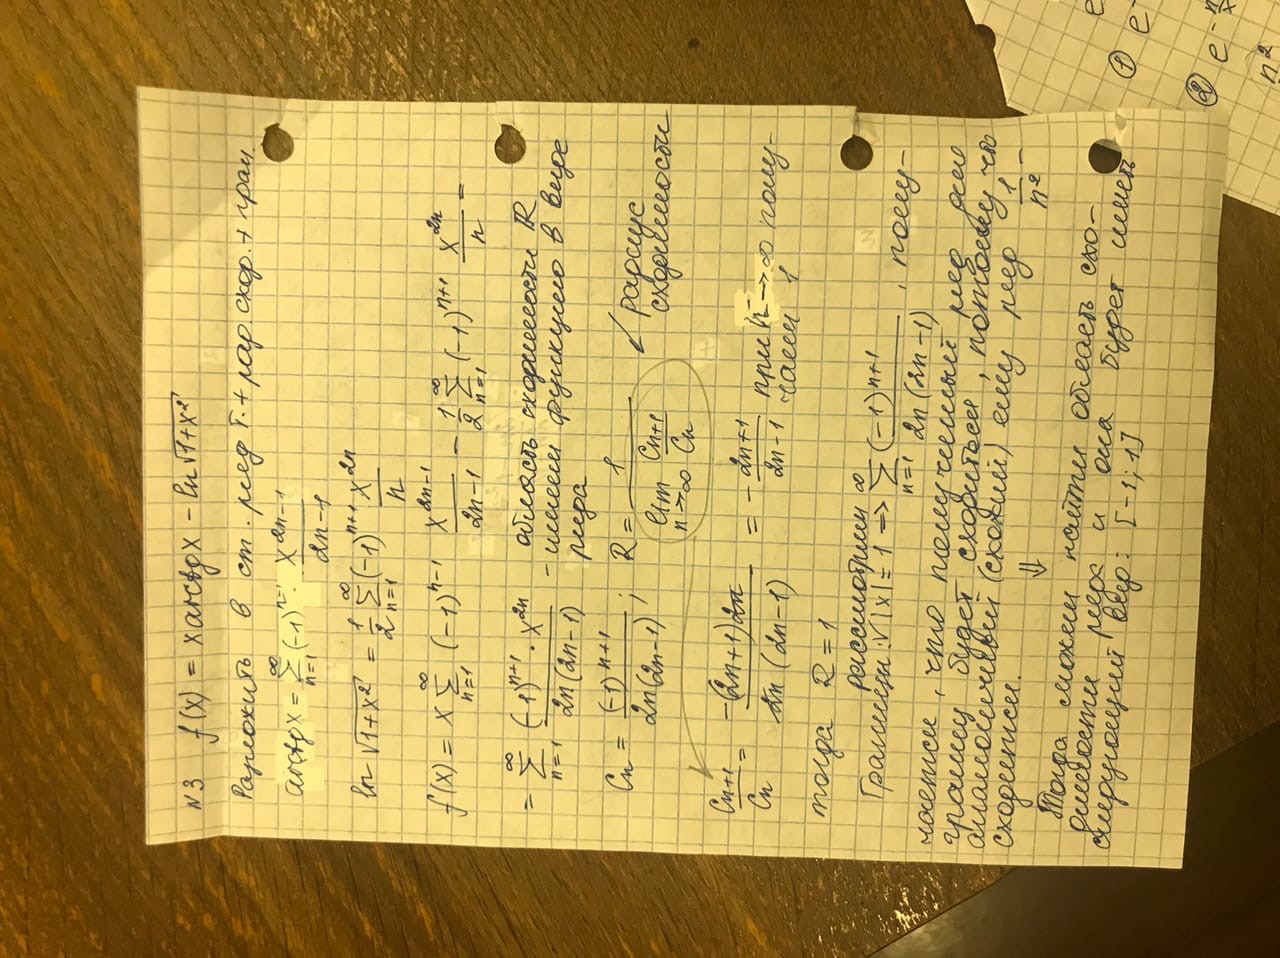 N3 f(x) = x arctg x − ln √1+x²
Разложить в ст. ряд Т. + рар скор. + гран
arctg x = ∑_{n=1}^{∞} (-1)^{n-1} · x^{2n-1}/(2n-1)
ln √1+x² = 1/2 ∑_{n=1}^{∞} (-1)^{n+1} · x^{2n}/n
f(x) = x ∑_{n=1}^{∞} (-1)^{n-1} x^{2n-1}/(2n-1) − 1/2 ∑_{n=1}^{∞} (-1)^{n+1} x^{2n}/n =
= ∑_{n=1}^{∞} (-1)^{n+1} · x^{2n} / 2n(2n-1) - область сходимости R
-шими функцию в виде
ряда
C_n = (-1)^{n+1} / 2n(2n-1) ; R = 1 / lim_{n→∞} C_{n+1}/C_n ↙ радиус
сходимости
C_{n+1}/C_n = -(2n+1)2n / 2n(2n-1) = - 2n+1 / 2n-1 при n → ∞ полу-
чаем 1
тогда R = 1
рассмотрим
Границы: ∀|x| = 1 => ∑_{n=1}^{∞} (-1)^{n+1} / 2n(2n-1) , полу-
чается, что полученный ряд
границ будет сходиться, потому что
(схожий) ему ряд 1/n² -
сходится.
⇓
Тогда сможем найти область схо-
димости ряда и она будет иметь
следующий вид: [-1; 1]
① e
② e^{-n/x}
n²